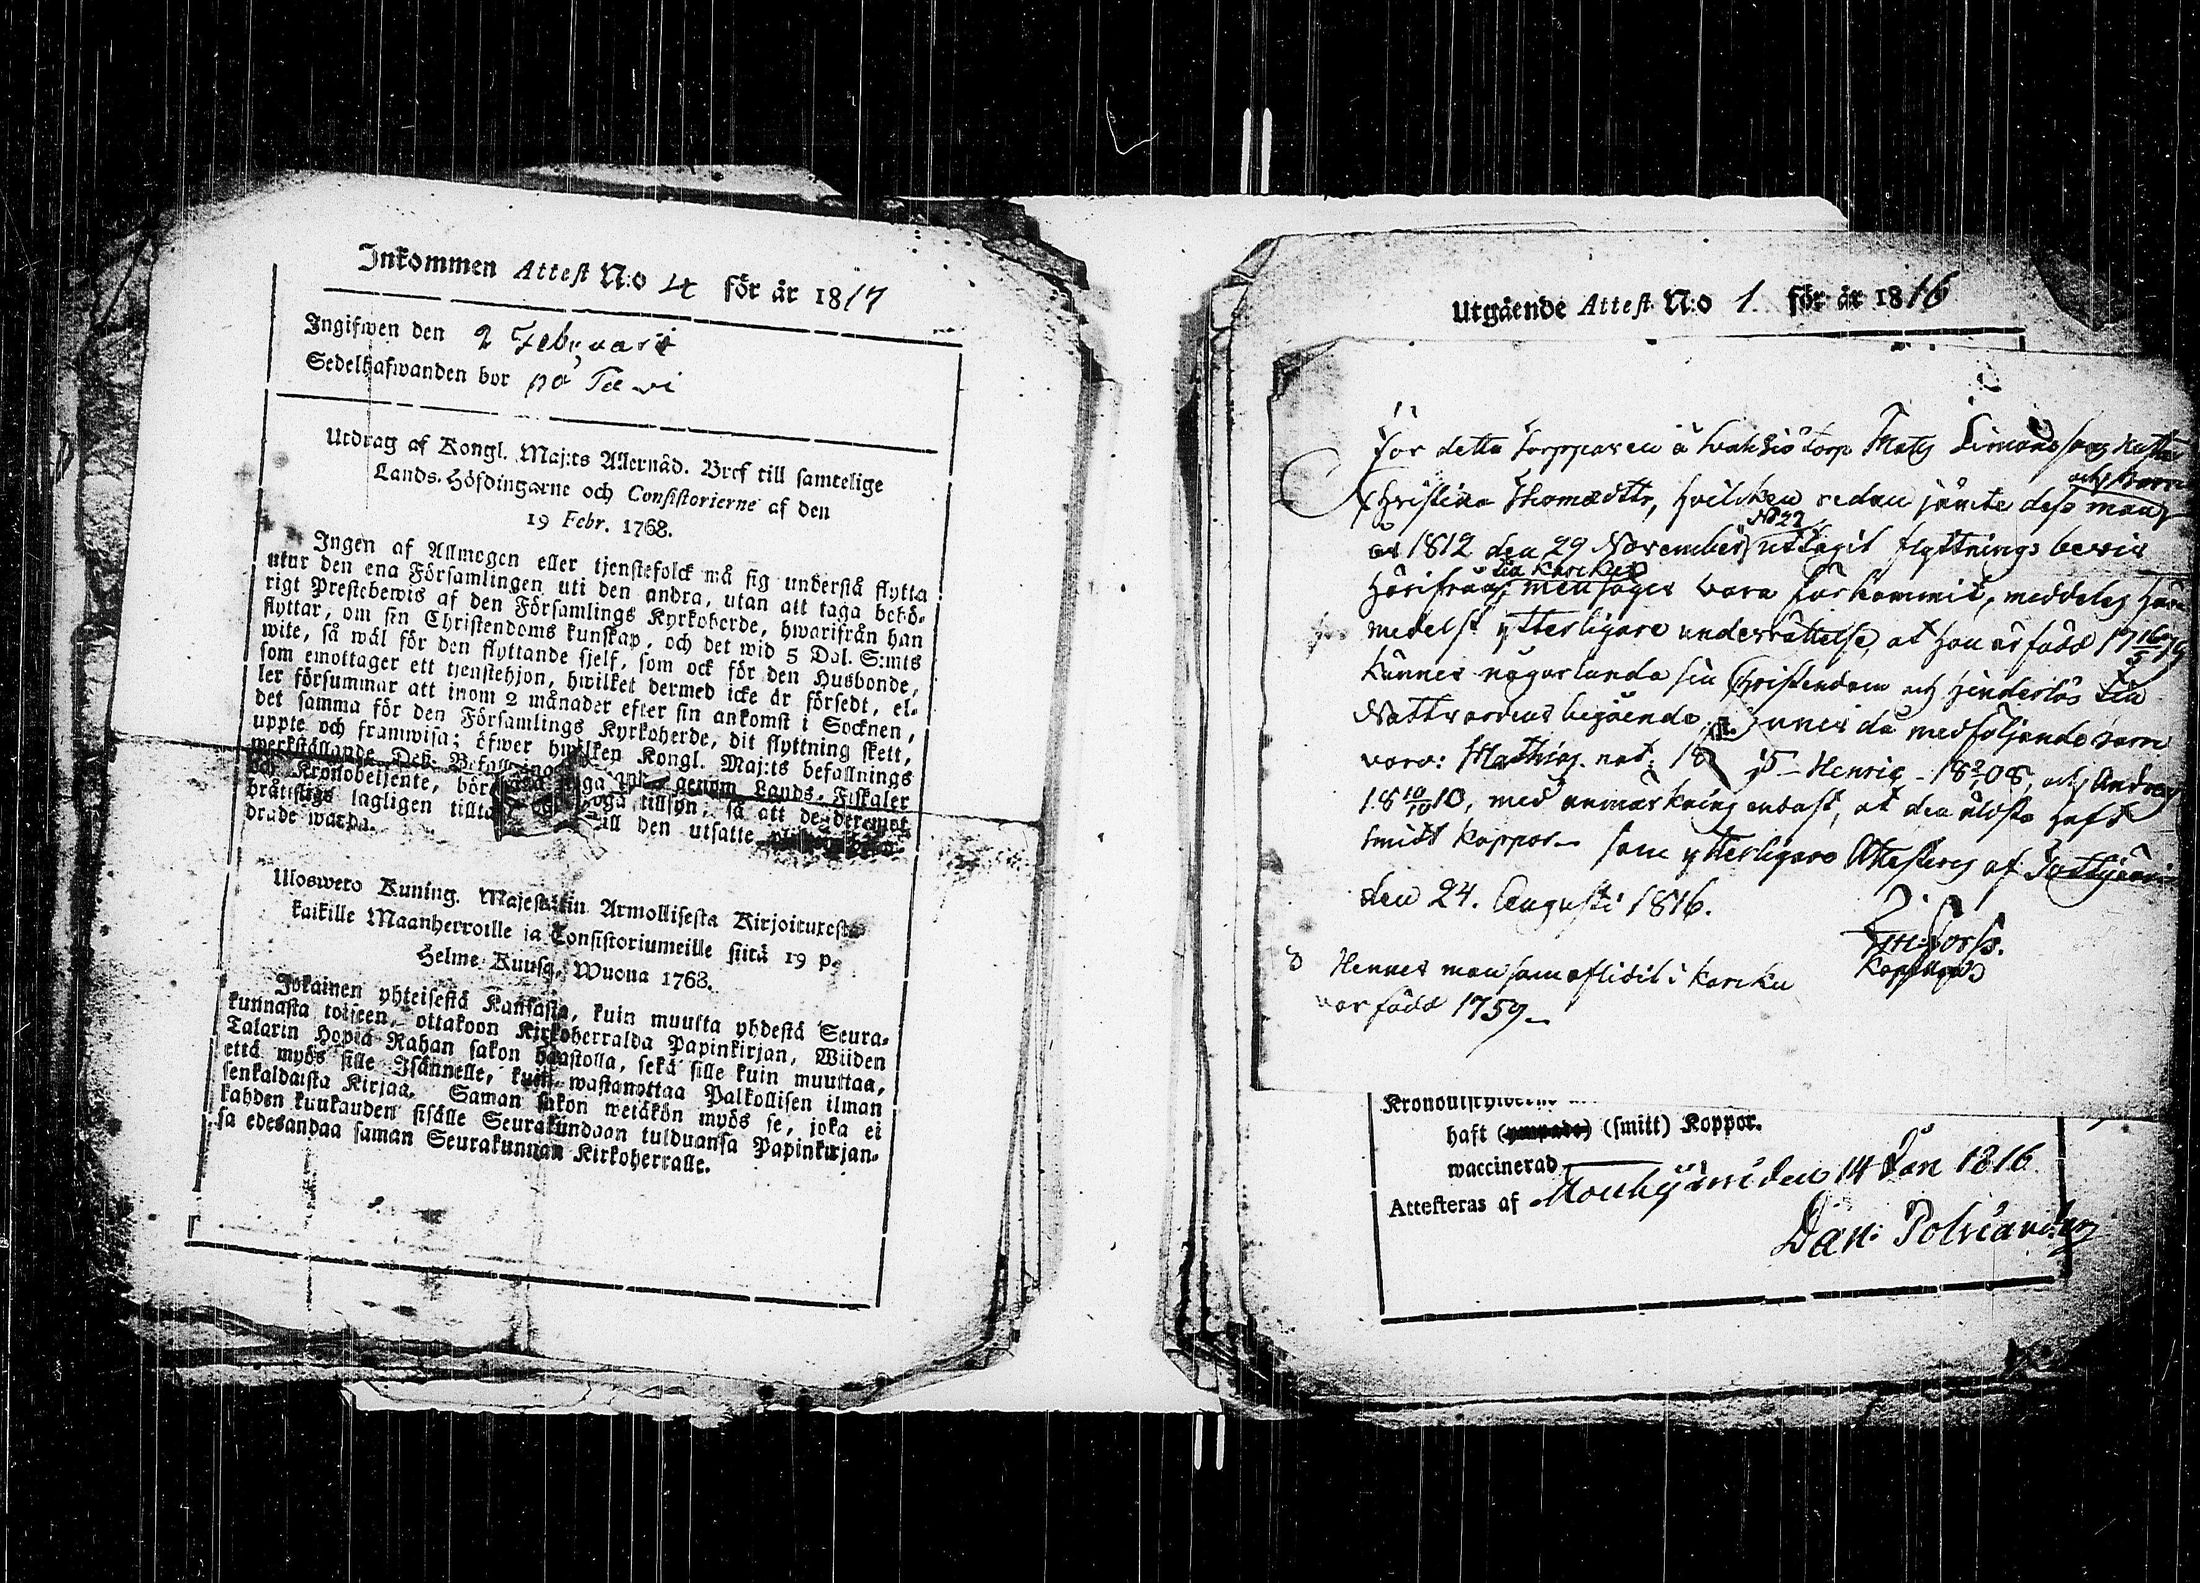 Inkommen Attest N:o 4 för år 1817
Ingifwen den 2 Februarii
Sedelhafwanden bor på Tawi
Utdrag af Kongl. Maj:ts Allernåd. Bref till samtelige
Lands-Höfdingarne och Consistorierne af den
19 Febr. 1768.
Ingen af Allmogen eller tjenstefolck må sig understå flytta
utur den ena Församlingen uti den andra, utan att taga behö-
rigt Prestebewis af den Församlings Kyrkoherde, hwarifrån han
flyttar, om sin Christendoms kunskap, och det wid 5 Dal. S:mts
wite, så wäl för den flyttande sjelf, som ock för den Husbonde,
som emottager ett tjenstehjon, hwilket dermed icke är försedt, el-
ler försummar att inom 2 månader efter sin ankomst i Socknen,
det samma för den Församlings Kyrkoherde, dit flyttning skett,
uppte och framwisa; öfwer hwilken Kongl. Maj:ts befallnings
werkställande Deß Befallnings genom Lands-Fiskaler
och Kronobetjente, bör noga tillsyn, så att de deremot
brättslige lagligen tillta till den utsatte
drade warda.
Uloswero Kuning. Majestätin Armollisesta Kirjoituxesta
kaikille Maanherroille ja Consistoriumeille siitä 19 p.
Helme Kuusa, Wuona 1768.
Jokainen yhteisestä Kansasta, kuin muutta yhdestä Seura-
kunnasta toiseen, ottakoon Kirkoherralda Papinkirjan, Wiiden
Talarin Hopia Rahan sakon haastolla, sekä sille kuin muuttaa,
että myös sille Isännelle, kuin wastanottaa Palkollisen ilman
senkaldaista Kirjaa. Saman sakon wetäkön myös se, joka ei
kahden kuukauden sisälle Seurakundaan tulduansa Papinkirjan-
sa edesandaa saman Seurakunnan Kirkoherralle.
Utgående Attest N:o 1. för år 1816
För detta Torpparen å torp Mats Simonssons hustru
och Barn
Christina Thomædtr, hvilken redan jämte dess man
No 27
år 1812 den 29 November uttagit flyttnings bevis
til Karcku
härifrån, men säges vara förkommit, meddelas här
medelst ytterligare underrättelse, at hon är född 17
känner någorlunda sin Christendom och hinderlös til
Nattvardens begående. ännes då medföljande barn
voro: Mathias nat. 18 Henric 18 2/7 08, och Andreas
18 10/10 10, med anmärkning endast, at den äldsta haft
smitt koppor som ytterligare Attesteras af
den 24. Augusti 1816.
Kappelan
Hennes man som aflidit i Karcku
var född 1759
haft (smitt) Koppor.
waccinerad
Attesteras af Mouhijärvi den 14 Jan 1816
Dan: Polviander